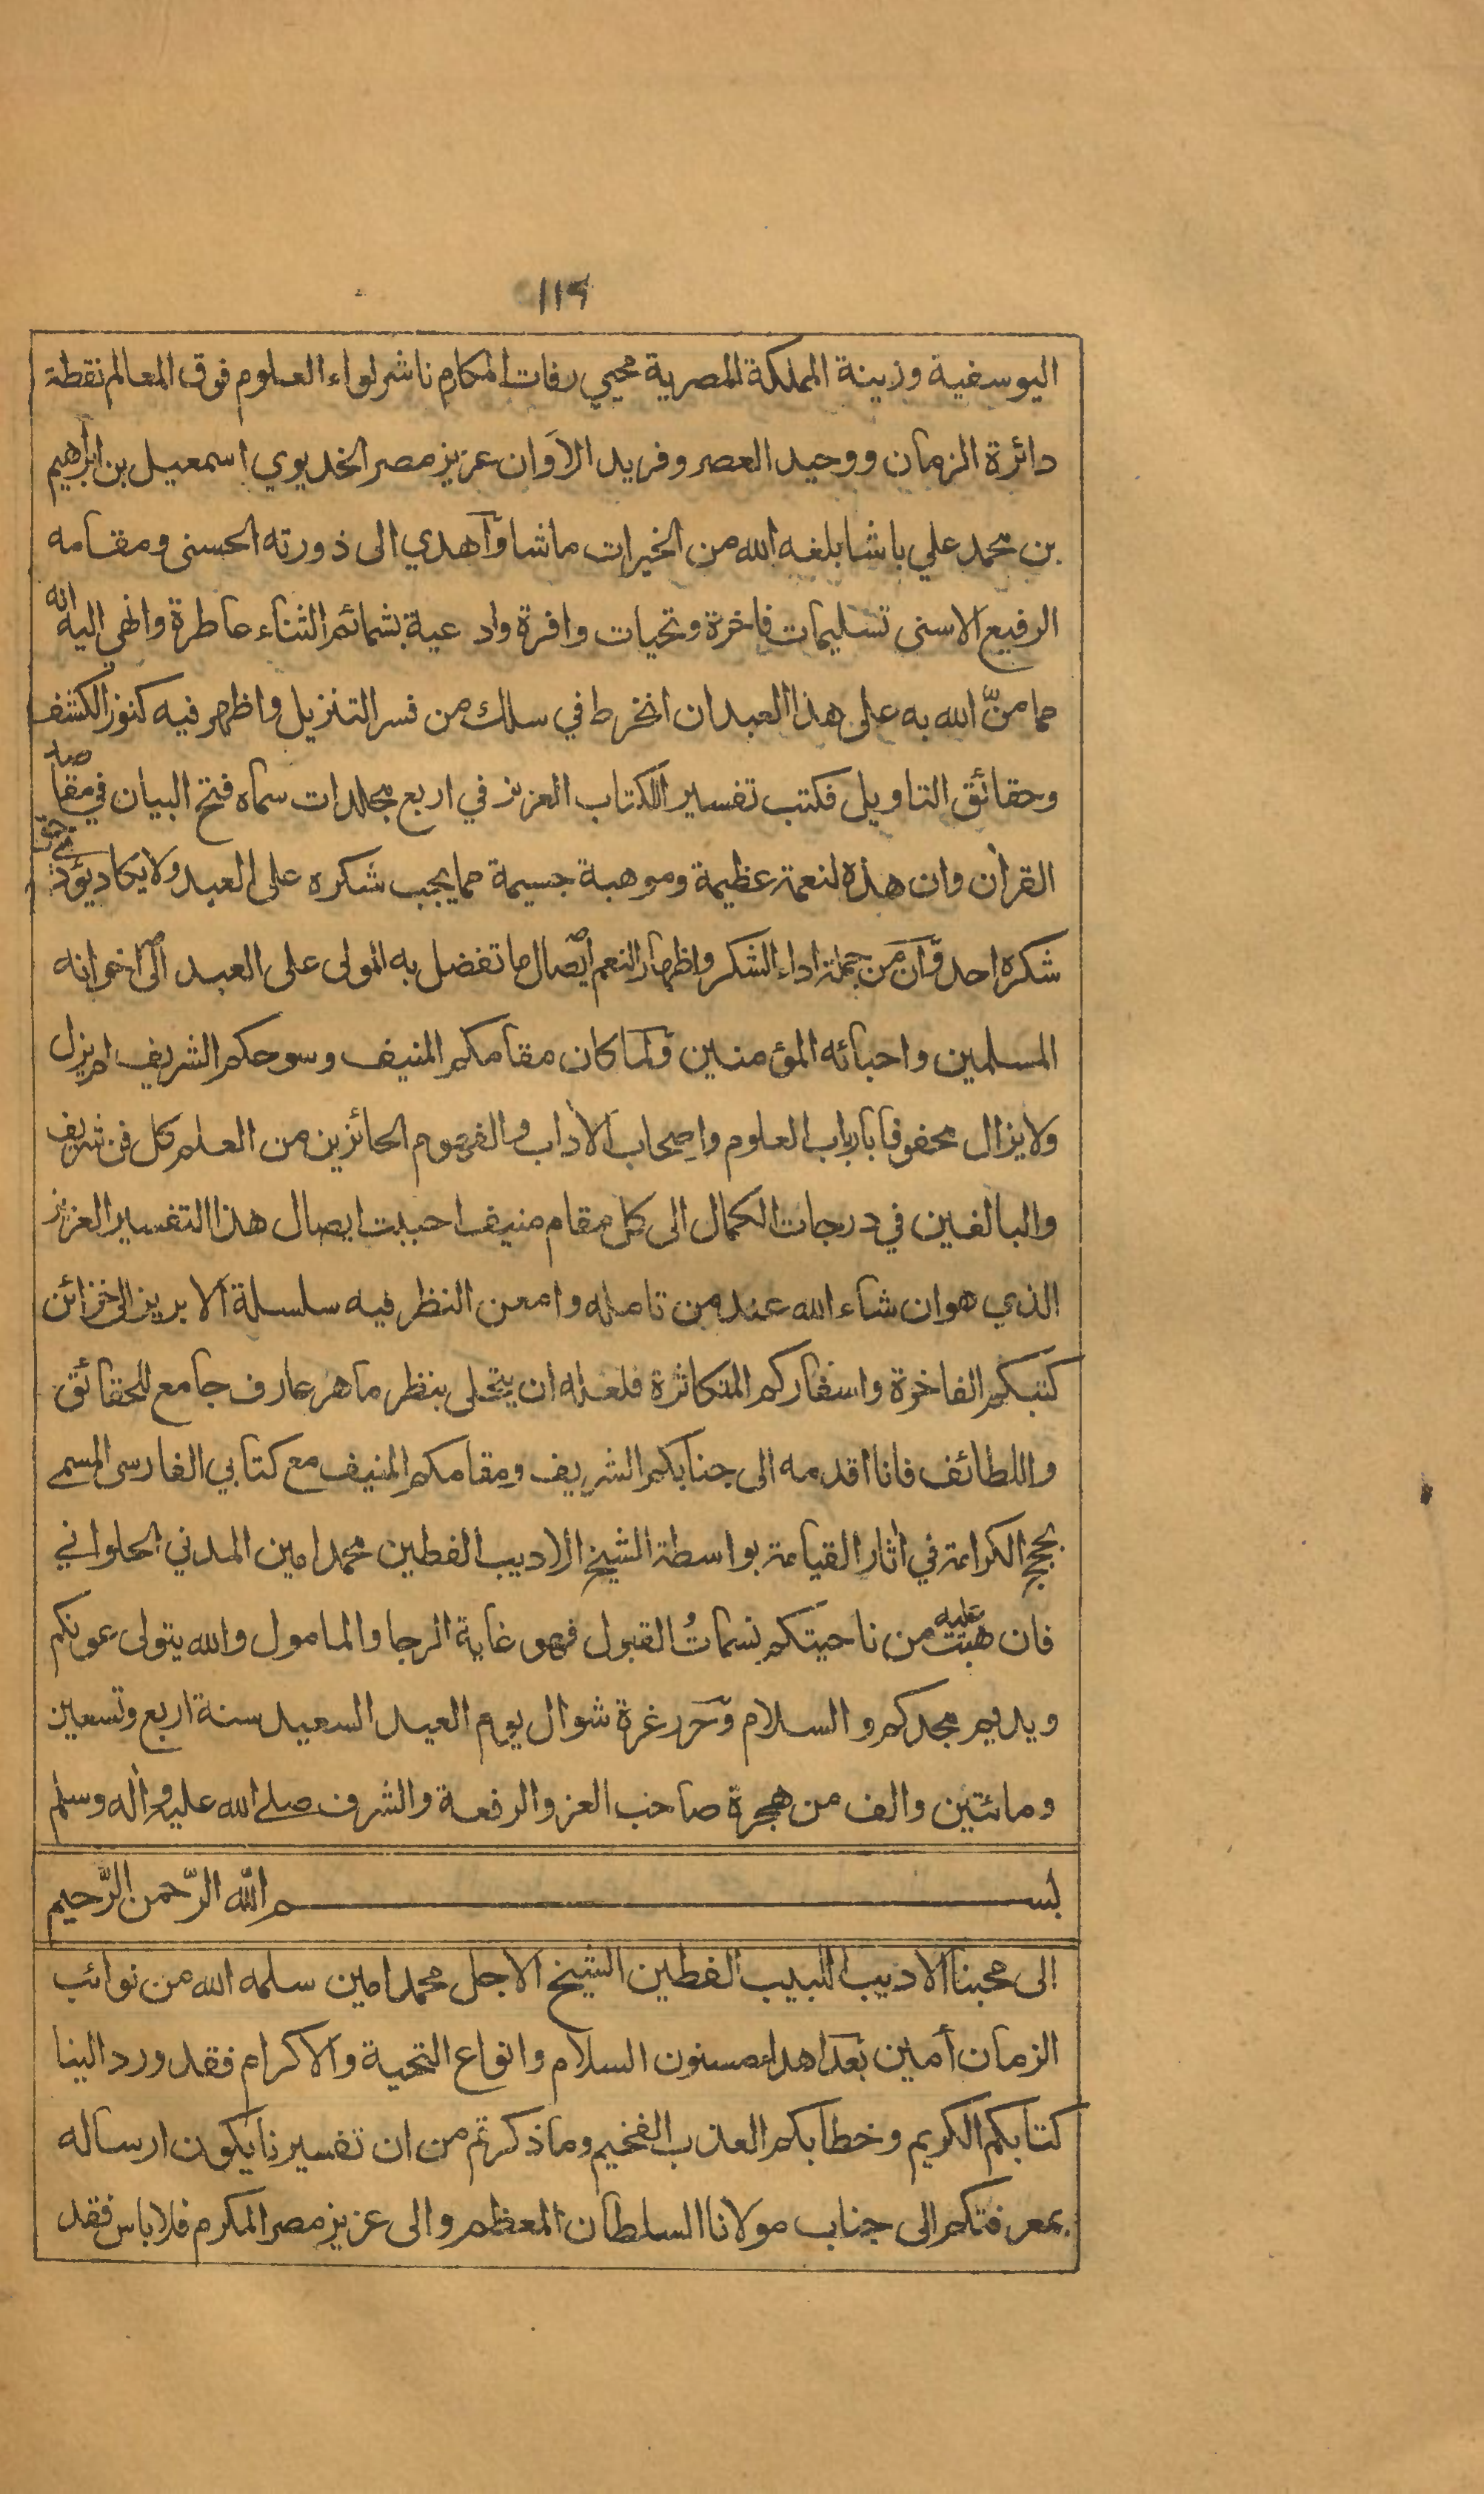 ۱۱۹
اليوسفية وزينة المملكة المصرية محيي رفات المكارم ناشر لواء العلوم فوق المعالم نقطة
دائرة الزمان ووحيد العصر وفريد الاَوان عزيز مصر الخديوي اسمعيل بن ابراهيم
بن محمد علي باشا بلغه الله من الخيرات ما شا وَاهدي الى ذورته الحسنى ومقامه
الرفيع الاسنى تسليمات فاخرة وتحيات وافرة وادعية بشمائم الثناء عاطرة وانهي اليه انه
مما منّ الله به على هذا العبد ان انخرط في سلك من فسر التنزيل واظهر فيه كنوز الكشف
وحقائق التاويل فكتب تفسير الكتاب العزيز في اربع مجلدات سماه فتح البيان في مقاصد
القرأن وان هذه لنعمة عظيمة وموهبة جسيمة مما يجب شكره على العبد ولا يكاد يؤدي حق
شكره احد وَّان مَن جملة اداء الشكر واظهار النعم ايصال ما تفضل به المولى على العبد الى اخوانه
المسلمين واحبائه المؤمنين وَلما كان مقامكم المنيف وسوحكم الشريف لم يزل
ولا يزال محفوفا بارباب العلوم واصحاب الأداب والفهوم الحائزين من العلم كل فن شريف
والبالغين في درجات الكمال الى كل مقام منيف احببت ايصال هذا التفسير العزيز
الذي هو ان شاء الله عند من تامله وامعن النظر فيه سلسلة الابريز الى خزائن
كتبكم الفاخرة واسفاركم المتكاثرة فلعله ان يتحلى بنظر ماهر عارف جامع للحقائق
واللطائف فانا اقدمه الى جنابكم الشريف ومقامكم المنيف مع كتابي الفارسى المسمے
بحجج الكرامة في اثار القيامة بواسطة الشيخ الاديب الفطين محمد امين المدني الحلواني
فان هبت عليه من ناحيتكم نسماتُ القبول فهو غاية الرجا والمامول والله يتولى عمونكم
ويديم مجدكم والسلام وَحَرر غرة شوال يوم العيد السعيد سنة اربع وتسعين
ومائتين والف من هجرة صاحب العز والرفعة والشرف صلے الله عليه وأله وسلم
بســـــــــم اللّه الرّحمن الرّحيم
الى محبنا الاديب اللبيب الفطين الشيخ الاجل محمد امين سلمه الله من نوائب
الزمان أمين بَعدَ اهداء مسنون السلام وانواع التحية والاكرام فقد ورد الينا
كتابكم الكريم وخطابكم العذب الفخيم وما ذكرتم من ان تفسيرنا يكون ارساله
بمعرفتكم الى جناب مولانا السلطان المعظم والى عزيز مصر المكرم فلا باس فقد